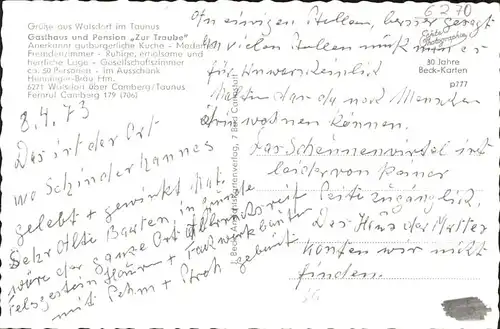 6270
Grüße aus Walsdorf im Taunus
Gasthaus und Pension „Zur Traube"
Anerkannt gutbürgerliche Küche - Moderne
Fremdenzimmer - Ruhige, erholsame und
herrliche Lage - Gesellschaftszimmer
ca. 50 Personen - im Ausschank
Henninger-Bräu Ffm.
6271 Walsdorf über Camberg/Taunus
Fernruf Camberg 179 (706)
8.4.73
Das ist der Ort
wo Schinderhannes
gelebt + gewirkt hat.
Sehr Alte Bauten,
wäre der ganze Ort
Felsgestein + Fachwerkbauten
mit Lehm + Stroh gebaut
Beck, Ansichtskartenverlag, 7 Bad Cannstatt
Echte Photographie
30 Jahre
Beck-Karten
p777
An einigen Stellen, besser gesagt
An vielen Stellen muß man es
für Unwahrscheinlich
halten das da noch Menschen
drin wohnen können.
Das Scheunenviertel ist
leider von keiner
Seite zugänglich.
Das Haus der Mutter
konnten wir nicht
finden.